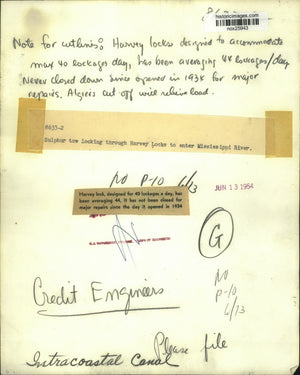 historicimages.com
nox25943
Note for cutlines: Harvey locks designed to accommodate
max 40 lockages day, has been averaging 44 lockages/day
Never closed down since opened in 1934 for major
repairs. Algiers cut off will relieve load.
#633-2
Sulphur tow locking through Harvey Locks to enter Mississippi River.
NO P-10 6/13
Harvey lock, designed for 40 lockages a day, has
been averaging 44. It has not been closed for
major repairs since the day it opened in 1934
JUN 13 1954
G
NO
P-10
6/13
Credit Engineers
Please file
Intracoastal Canal